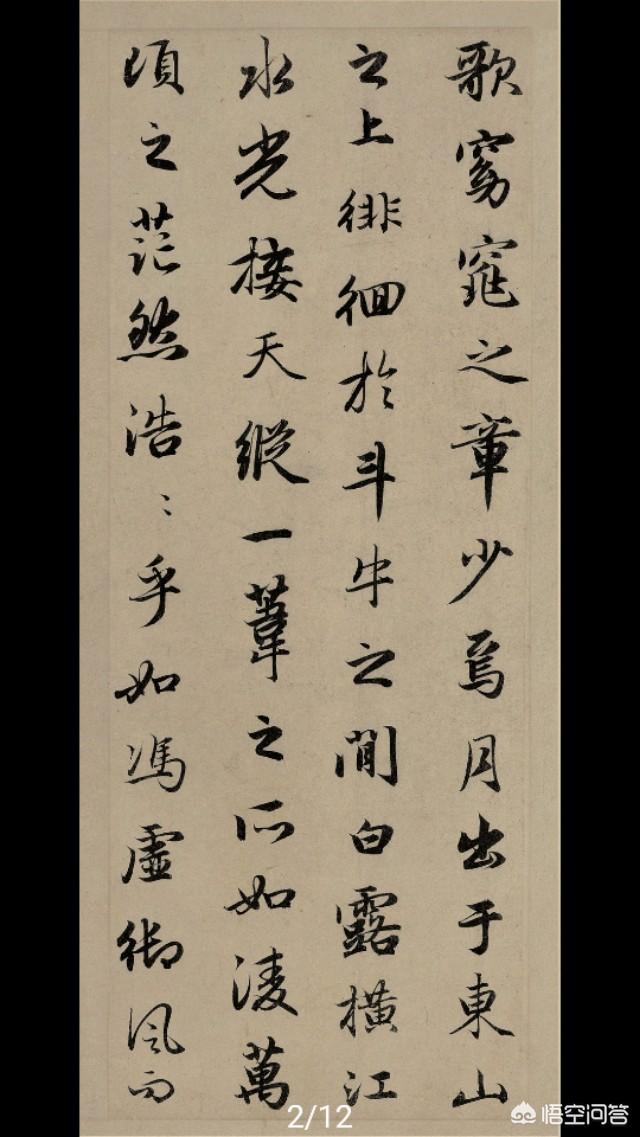 歌窈窕之章少焉月出于東山
之上徘徊於斗牛之間白露橫江
水光接天縱一葦之所如凌萬
頃之茫然浩〻乎如馮虛御風而
2/12
悟空问答